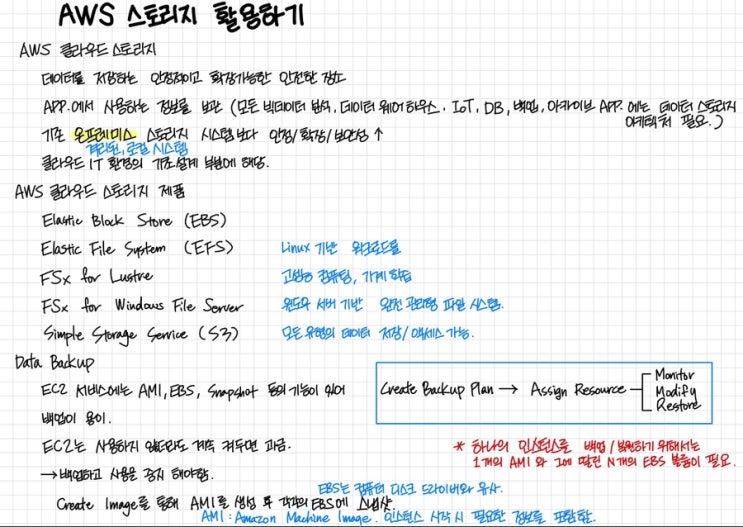 AWS 스토리지 활용하기
AWS 클라우드 스토리지
데이터를 저장하는 안정적이고 확장가능한 안전한 장소
APP.에서 사용하는 정보를 보관 (모든 빅데이터 분석, 데이터 웨어 하우스, IoT, DB, 백업, 아카이브 APP.에는 데이터 스토리지
아키텍처 필요.)
기존 온프레미스 스토리지 시스템보다 안정/확장/보안성 ↑
격리된, 로컬 시스템
클라우드 IT 환경의 기초설계 부분에 해당.
AWS 클라우드 스토리지 제품
Elastic Block Store (EBS)
Elastic File System (EFS) Linux 기반 워크로드를
FSx for Lustre 고성능 컴퓨팅, 기계 학습
FSx for Windows File Server 윈도우 서버 기반 완전 관리형 파일 시스템.
Simple Storage Service (S3) 모든 유형의 데이터 저장/액세스 가능.
Data Backup
EC2 서비스에는 AMI, EBS, Snapshot 등의 기능이 있어
백업이 용이.
Create Backup Plan → Assign Resource
Monitor
Modify
Restore
EC2는 사용하지 않더라도 계속 켜두면 과금.
→백업하고 사용을 중지 해야함.
* 하나의 인스턴스를 백업/복원하기 위해서는
1개의 AMI 와 그에 딸린 N개의 EBS 볼륨이 필요.
EBS는 컴퓨터 디스크 드라이버와 유사.
Create Image를 통해 AMI를 생성 후 각각의 EBS에 스냅샷.
AMI : Amazon Machine Image. 인스턴스 시작 시 필요한 정보를 포함함.